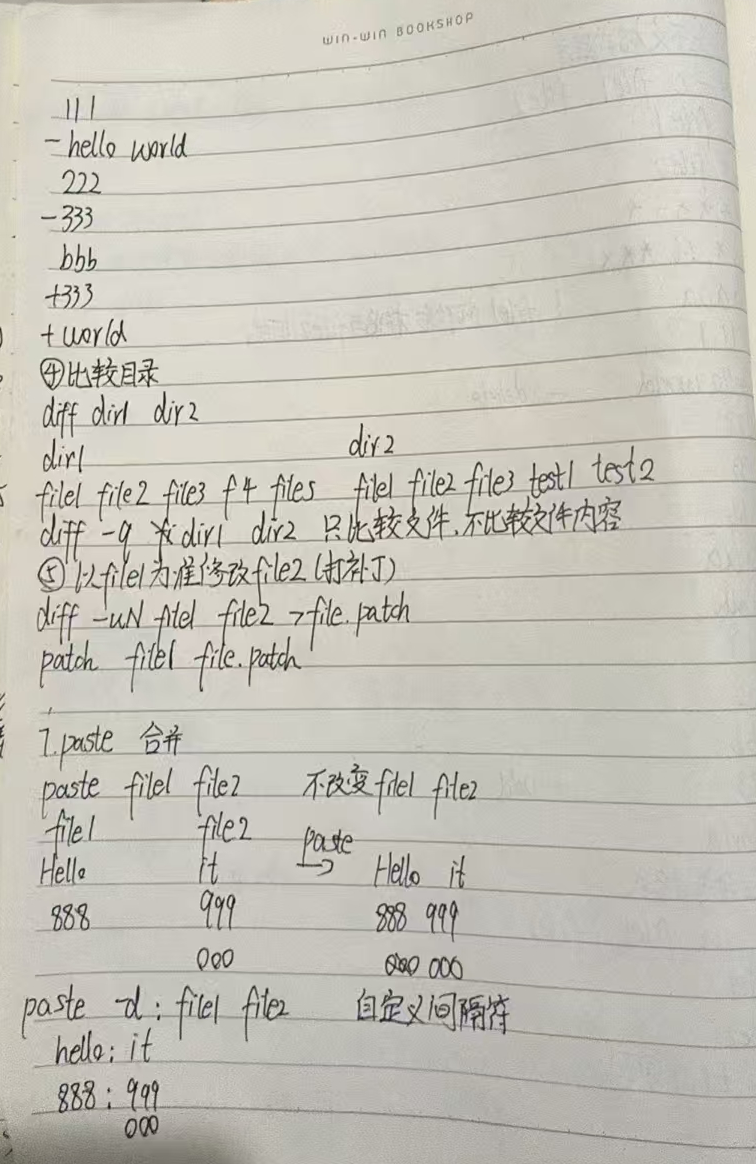 WIN-WIN BOOKSHOP
111
-hello world
222
-333
bbb
+333
+world
④比较目录
diff dir1 dir2
dir1 dir2
file1 file2 file3 f4 file5 file1 file2 file3 test1 test2
diff -q dir1 dir2 只比较文件,不比较文件内容
⑤以file1为准修改file2(打补丁)
diff -uN file1 file2 >file.patch
patch file1 file.patch
7.paste 合并
paste file1 file2 不改变file1 file2
file1 file2 paste
Hello it → Hello it
888 999 888 999
000 000
paste -d: file1 file2 自定义间隔符
hello: it
888: 999
000